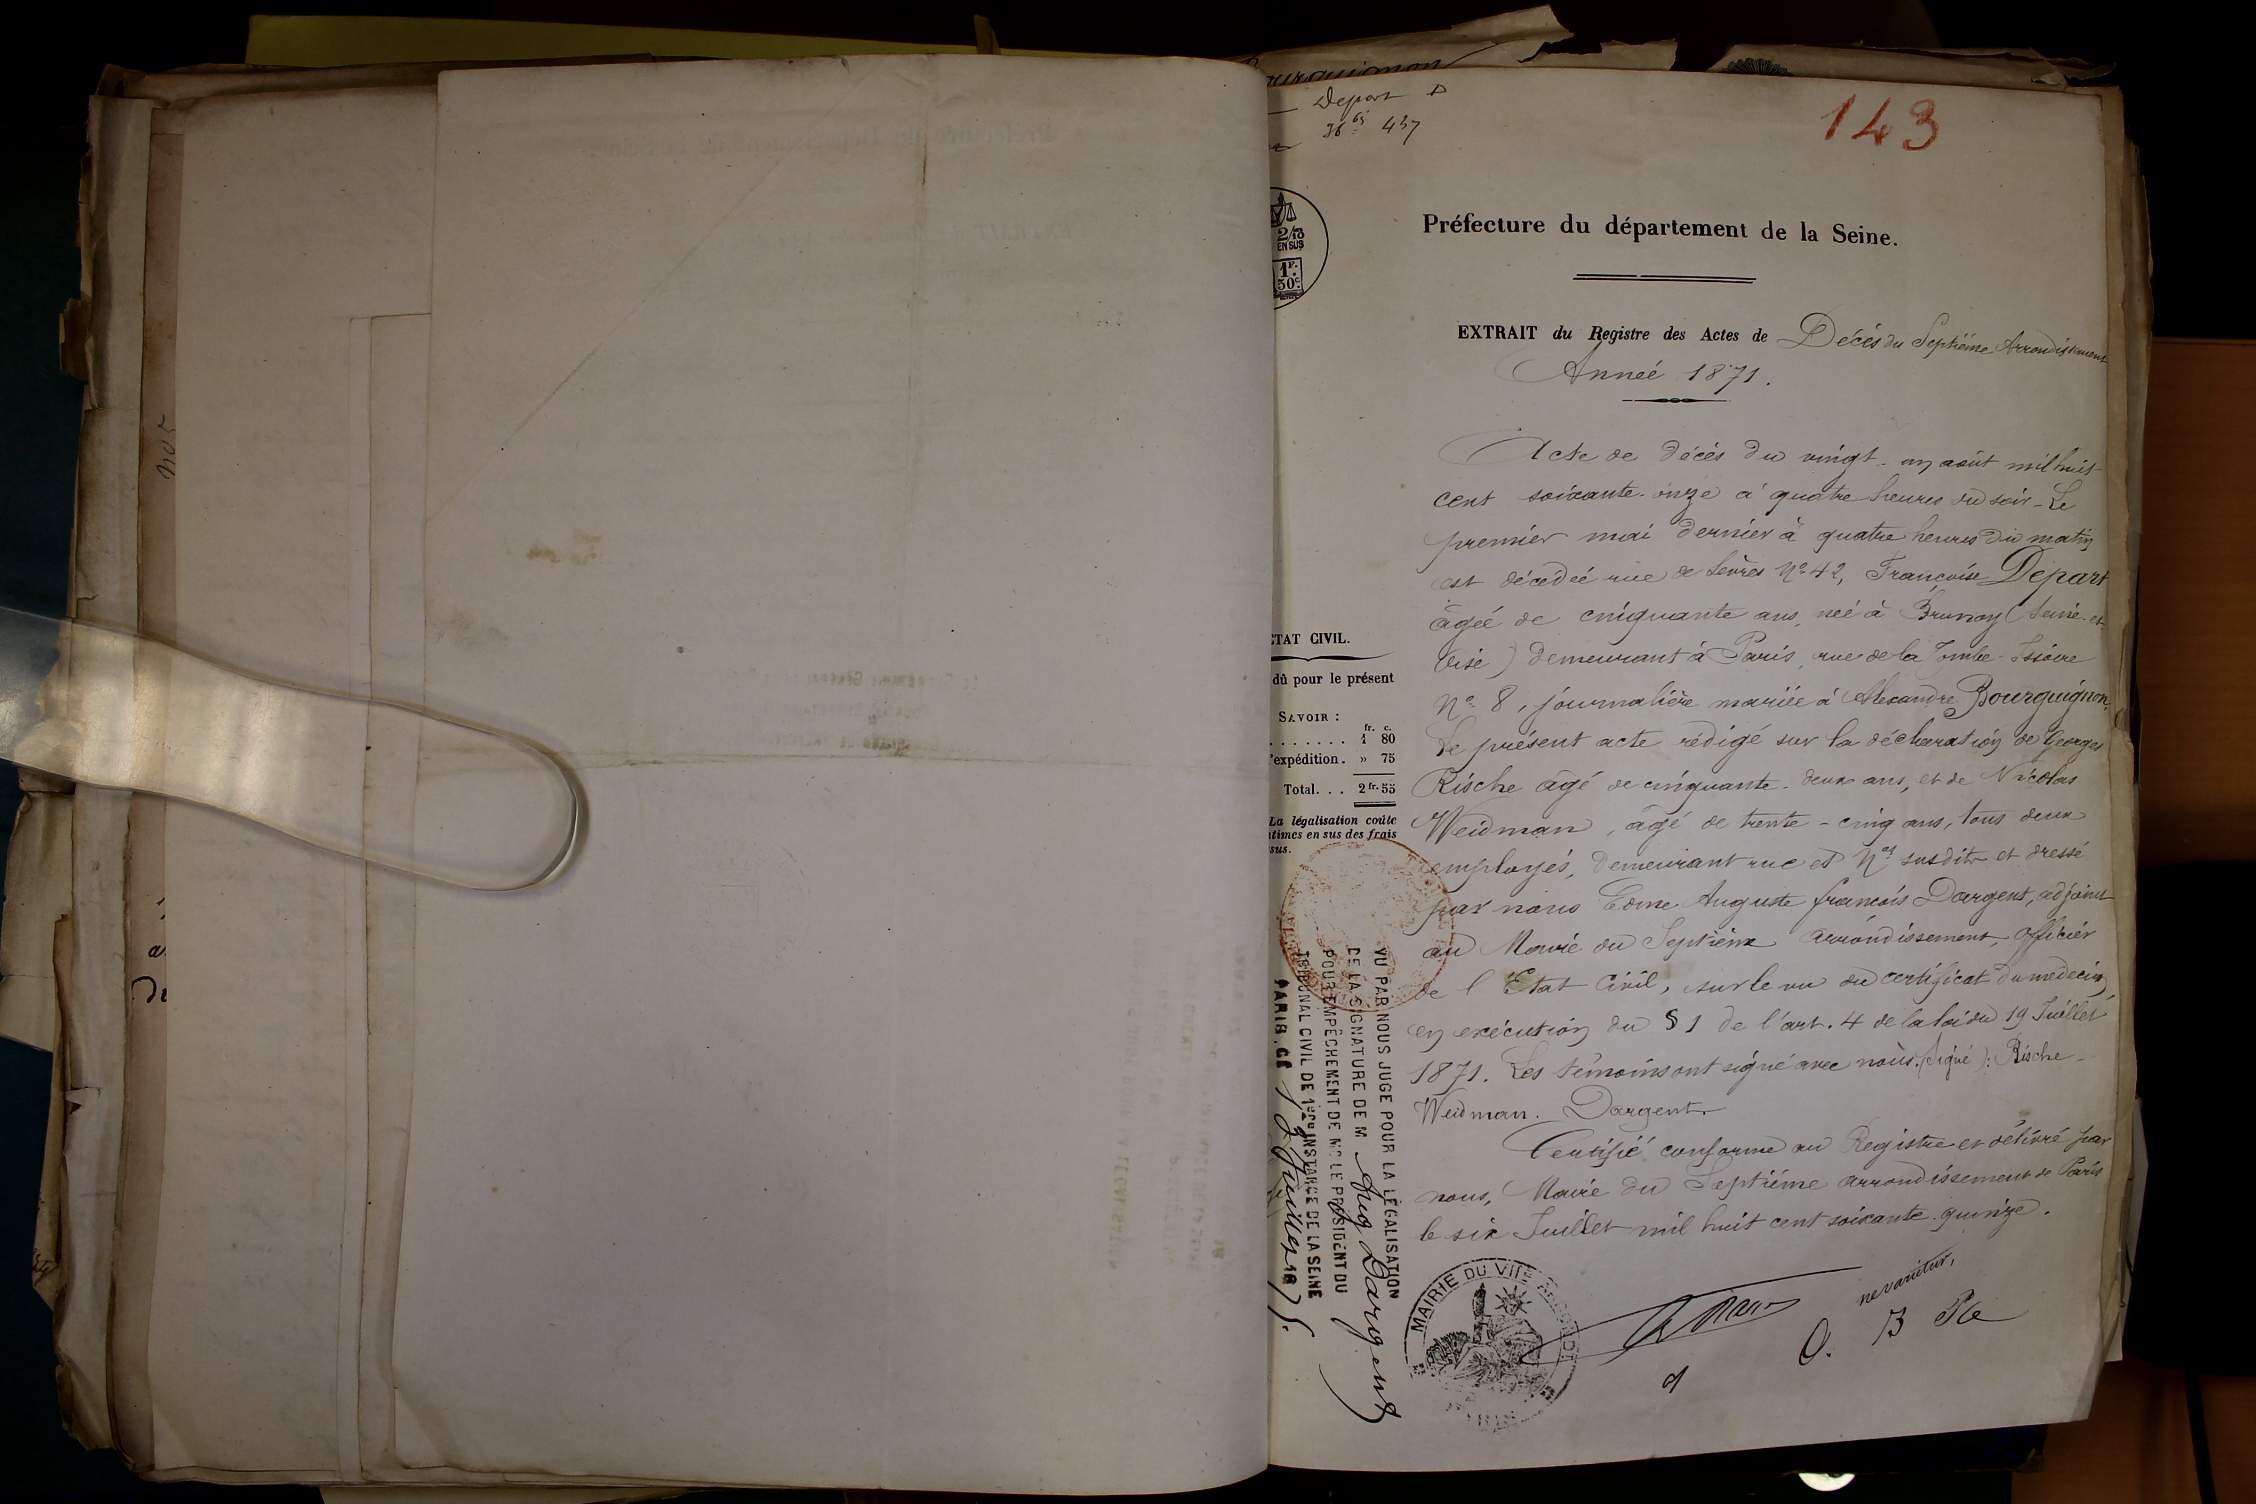 Bourguignon
Depart D
36 bis 437
143
2/10
EN SUS
1F.
50c.
Préfecture du département de la Seine.
EXTRAIT du Registre des Actes de Décès du Septième Arrondissement
Année 1871.
Acte de décès du vingt-un août mil huit
cent soixante-onze à quatre heures du soir - Le
premier mai dernier à quatre heures du matin
est décédée rue de Sèvres No 42, Françoise Depart
âgée de cinquante ans, née à Brunoy (Seine-et-
Oise) demeurant à Paris, rue de la Tombe-Issoire
No 8, journalière mariée à Alexandre Bourguignon.
Le présent acte rédigé sur la déclaration de Georges
Rische âgé de cinquante-deux ans, et de Nicolas
Weidman, âgé de trente-cinq ans, tous deux
employés, demeurant rue et Nos susdits et dressé
par nous Edme Auguste françois Dargent, adjoint
au Maire du Septième arrondissement, officier
de l'Etat Civil, sur le vu du certificat du medecin,
en exécution du § 1 de l'art. 4 de la loi du 19 Juillet
1871. Les témoins ont signé avec nous. (signé): Rische -
Weidman. Dargent
Certifié conforme au Registre et délivré par
nous, Maire du Septième arrondissement de Paris
le six Juillet mil huit cent soixante quinze.
ÉTAT CIVIL.
dû pour le présent
SAVOIR :
fr. c.
. . . . . . . 1 80
l'expédition. » 75
Total. . . 2 fr. 55
La légalisation coûte
ntimes en sus des frais
sus.
VU PAR NOUS JUGE POUR LA LÉGALISATION
DE LA SIGNATURE DE M Aug Dargent
POUR EMPÊCHEMENT DE Mr LE PRÉSIDENT DU
TRIBUNAL CIVIL DE 1ère INSTANCE DE LA SEINE
PARIS, CE 13 Juillet 1875.
MAIRIE DU VIIe ARRONDT
ne varietur,
O. B